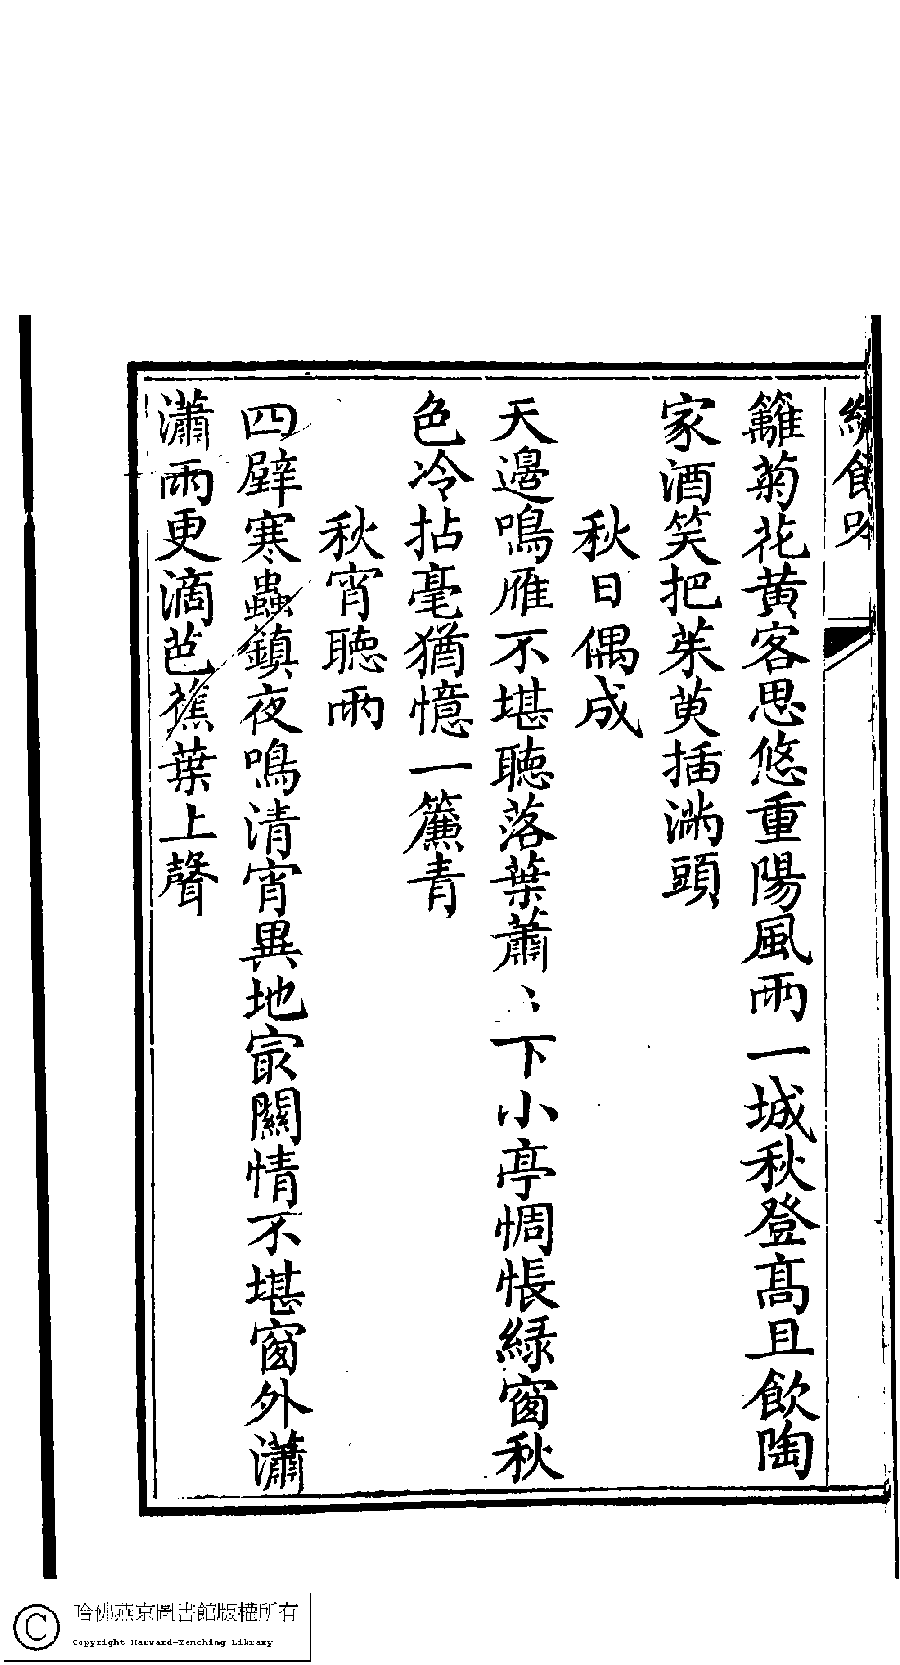 籬菊花黄客思悠重陽風雨一城秋登髙且飲陶
家酒笑把茱萸插滿頭
秋日偶成
天邊鳴雁不堪聴落葉蕭〻下小亭惆悵緑窗秋
色冷拈毫猶憶一簾青
秋宵聴雨
四壁寒蟲鎮夜鳴清宵異地㝡關情不堪窗外瀟
瀟雨更滴芭蕉葉上聲
哈佛燕京圖書館版權所有
Copyright Harvard-Yenching Library